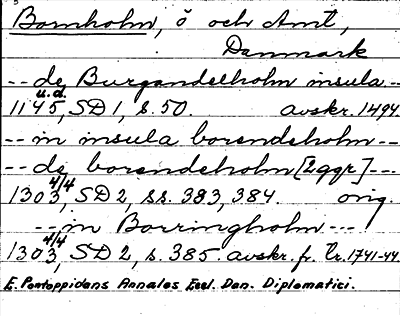 Bornholm, ö och Amt,
Danmark
-- de Burgandeholm insula --
u.d.
1145, SD 1, s. 50. avskr. 1494
-- in insula borendeholm --
-- de borendeholm [2 ggr] ---
1303 4/4, SD 2, ss. 383, 384. orig.
-- in Borringholm ---
1303 4/4, SD 2, s. 385. avskr. fr. Tr. 1741-44
E. Pontoppidans Annales Eccl. Dan. Diplomatici.